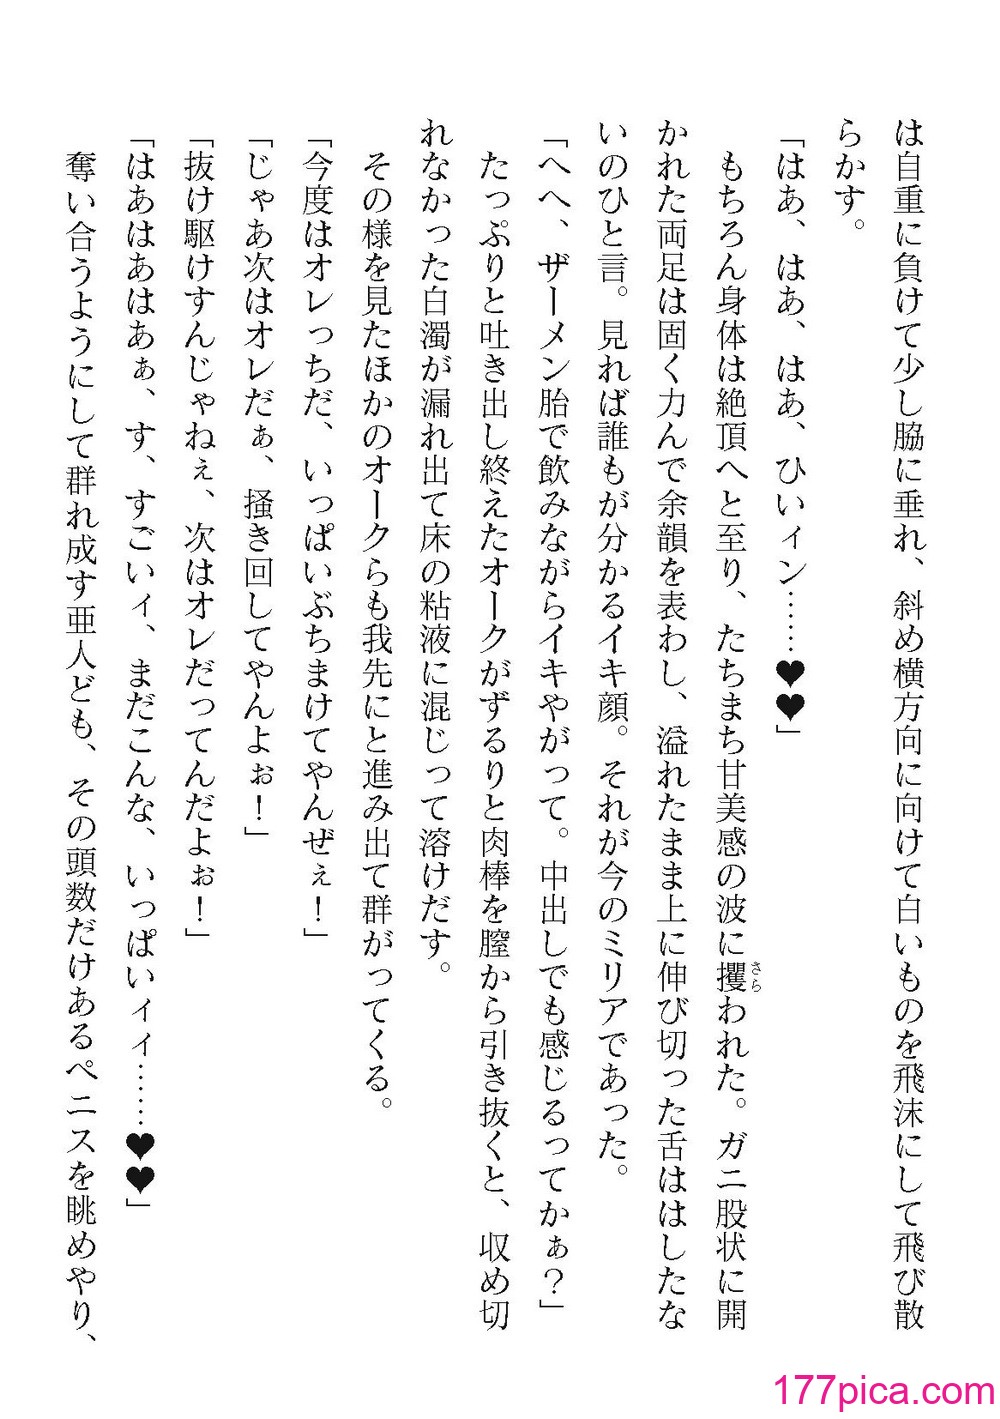 は自重に負けて少し脇に垂れ、斜め横方向に向けて白いものを飛沫にして飛び散
らかす。
「はあ、はあ、はあ、ひいィン……♥♥」
もちろん身体は絶頂へと至り、たちまち甘美感の波に攫われた。ガニ股状に開
さら
かれた両足は固く力んで余韻を表わし、溢れたまま上に伸び切った舌ははしたな
いのひと言。見れば誰もが分かるイキ顔。それが今のミリアであった。
「へへ、ザーメン胎で飲みながらイキやがって。中出しでも感じるってかぁ？」
たっぷりと吐き出し終えたオークがずるりと肉棒を膣から引き抜くと、収め切
れなかった白濁が漏れ出て床の粘液に混じって溶けだす。
その様を見たほかのオークらも我先にと進み出て群がってくる。
「今度はオレっちだ、いっぱいぶちまけてやんぜぇ！」
「じゃあ次はオレだぁ、掻き回してやんよぉ！」
「抜け駆けすんじゃねぇ、次はオレだってんだよぉ！」
「はあはあはあぁ、す、すごいィ、まだこんな、いっぱいィィ……♥♥」
奪い合うようにして群れ成す亜人ども、その頭数だけあるペニスを眺めやり、
177pica.com